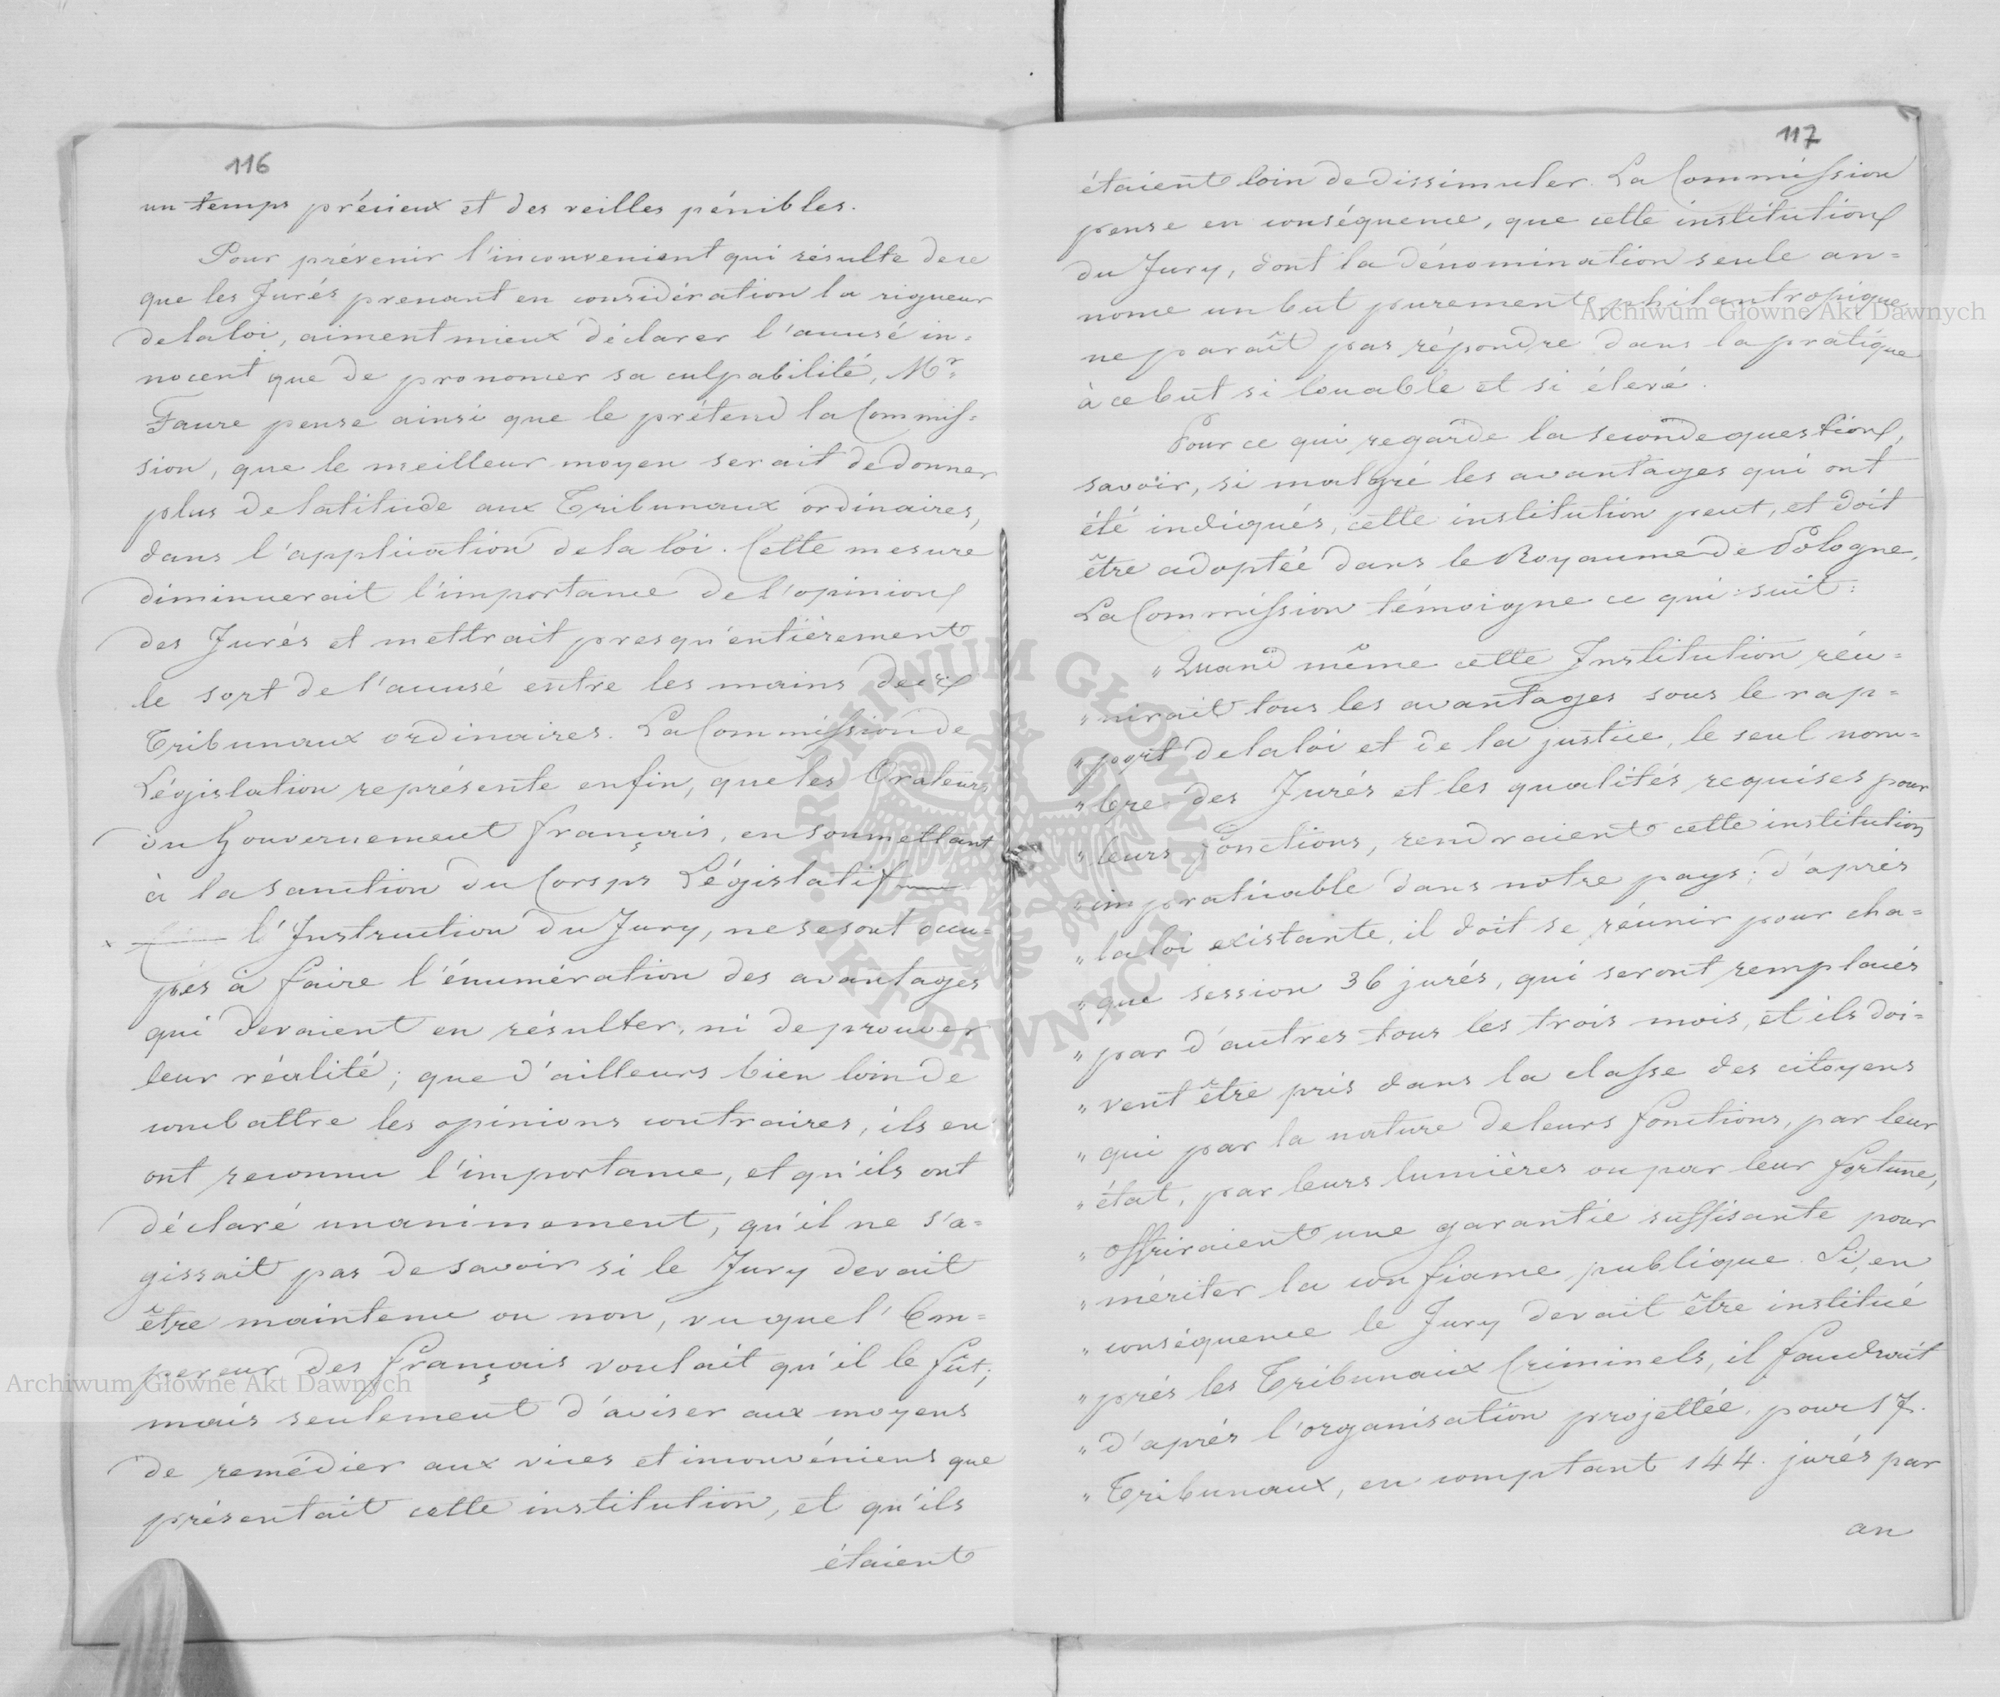 116
un temps précieux et des veilles pénibles.
Pour prévenir l'inconvenient qui résulte de ce
que les Jurés prenant en considération la rigueur
de la loi, aiment mieux déclarer l'accusé in=
nocent que de prononcer sa culpabilité, Mr.
Faure pense ainsi que le prétend la Commis=
sion, que le meilleur moyen serait de donner
plus de latitude aux Tribunaux ordinaires,
dans l'application de la loi. Cette mesure
diminuerait l'importance de l'opinion
des Jurés et mettrait presqu'entièrement
le sort de l'accusé entre les mains des
Tribunaux ordinaires. La Commission de
Législation représente enfin, que les Orateurs
du Gouvernement français, en soumettant
à la sanction du Corps Législatif
l'Instruction du Jury, ne se sont occu=
pés à faire l'énumération des avantages
qui devaient en résulter, ni de prouver
leur réalité; que d'ailleurs bien loin de
combattre les opinions contraires, ils en
ont reconnu l'importance, et qu'ils ont
déclaré unanimement, qu'il ne s'a=
gissait pas de savoir si le Jury devait
être maintenu ou non, vu que l'Em=
pereur des français voulait qu'il le fût;
mais seulement d'aviser aux moyens
de remédier aux vices et inconvéniens que
présentait cette institution, et qu'ils
étaient
117
étaient loin de dissimuler. La Commission
pense en conséquence, que cette institution
du Jury, dont la dénomination seule an=
nonce un but purement philantropique
ne paraît pas répondre dans la pratique
à ce but si louable et si élevé.
Pour ce qui regarde la seconde question,
savoir, si malgré les avantages qui ont
été indiqués, cette institution peut, et doit
être adoptée dans le Royaume de Pologne,
La Commission témoigne ce qui suit:
„ Quand même cette Institution réu=
„ nirait tous les avantages sous le rap=
„ port de la loi et de la justice, le seul nom=
„ bre des Jurés et les qualités requises pour
„ leurs fonctions, rendraient cette institution
„ impraticable dans notre pays; d'après
„ la loi existante, il doit se réunir pour cha=
„ que session 36 jurés, qui seront remplacés
„ par d'autres tous les trois mois, et ils doi=
„ vent être pris dans la classe des citoyens
„ qui par la nature de leurs fonctions, par leur
„ état, par leurs lumières ou par leur fortune,
„ offriraient une garantie suffisante pour
„ mériter la confiance publique. Si, en
„ conséquence le Jury devait être institué
„ près les Tribunaux Criminels, il faudrait
„ d'après l'organisation projettée, pour 17.
„ Tribunaux, en comptant 144. jurés par
an
Archiwum Główne Akt Dawnych
Archiwum Główne Akt Dawnych
ARCHIWUM GŁÓWNE · AKT DAWNYCH ·